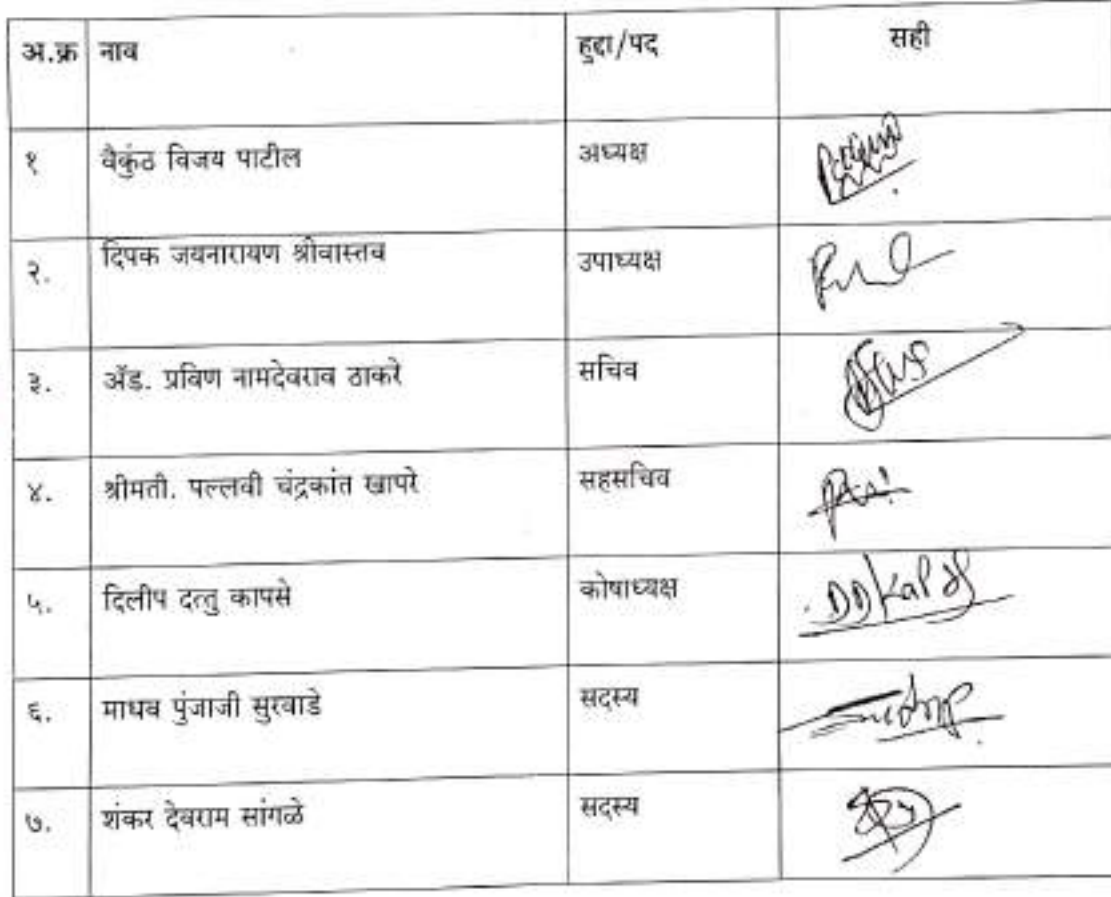 अ.क्र नाव हुद्दा/पद सही
१ वैकुंठ विजय पाटील अध्यक्ष
२. दिपक जयनारायण श्रीवास्तव उपाध्यक्ष
३. ॲड. प्रविण नामदेवराव ठाकरे सचिव
४. श्रीमती. पल्लवी चंद्रकांत खापरे सहसचिव
५. दिलीप दत्तु कापसे कोषाध्यक्ष
६. माधव पुंजाजी सुरवाडे सदस्य
७. शंकर देवराम सांगळे सदस्य